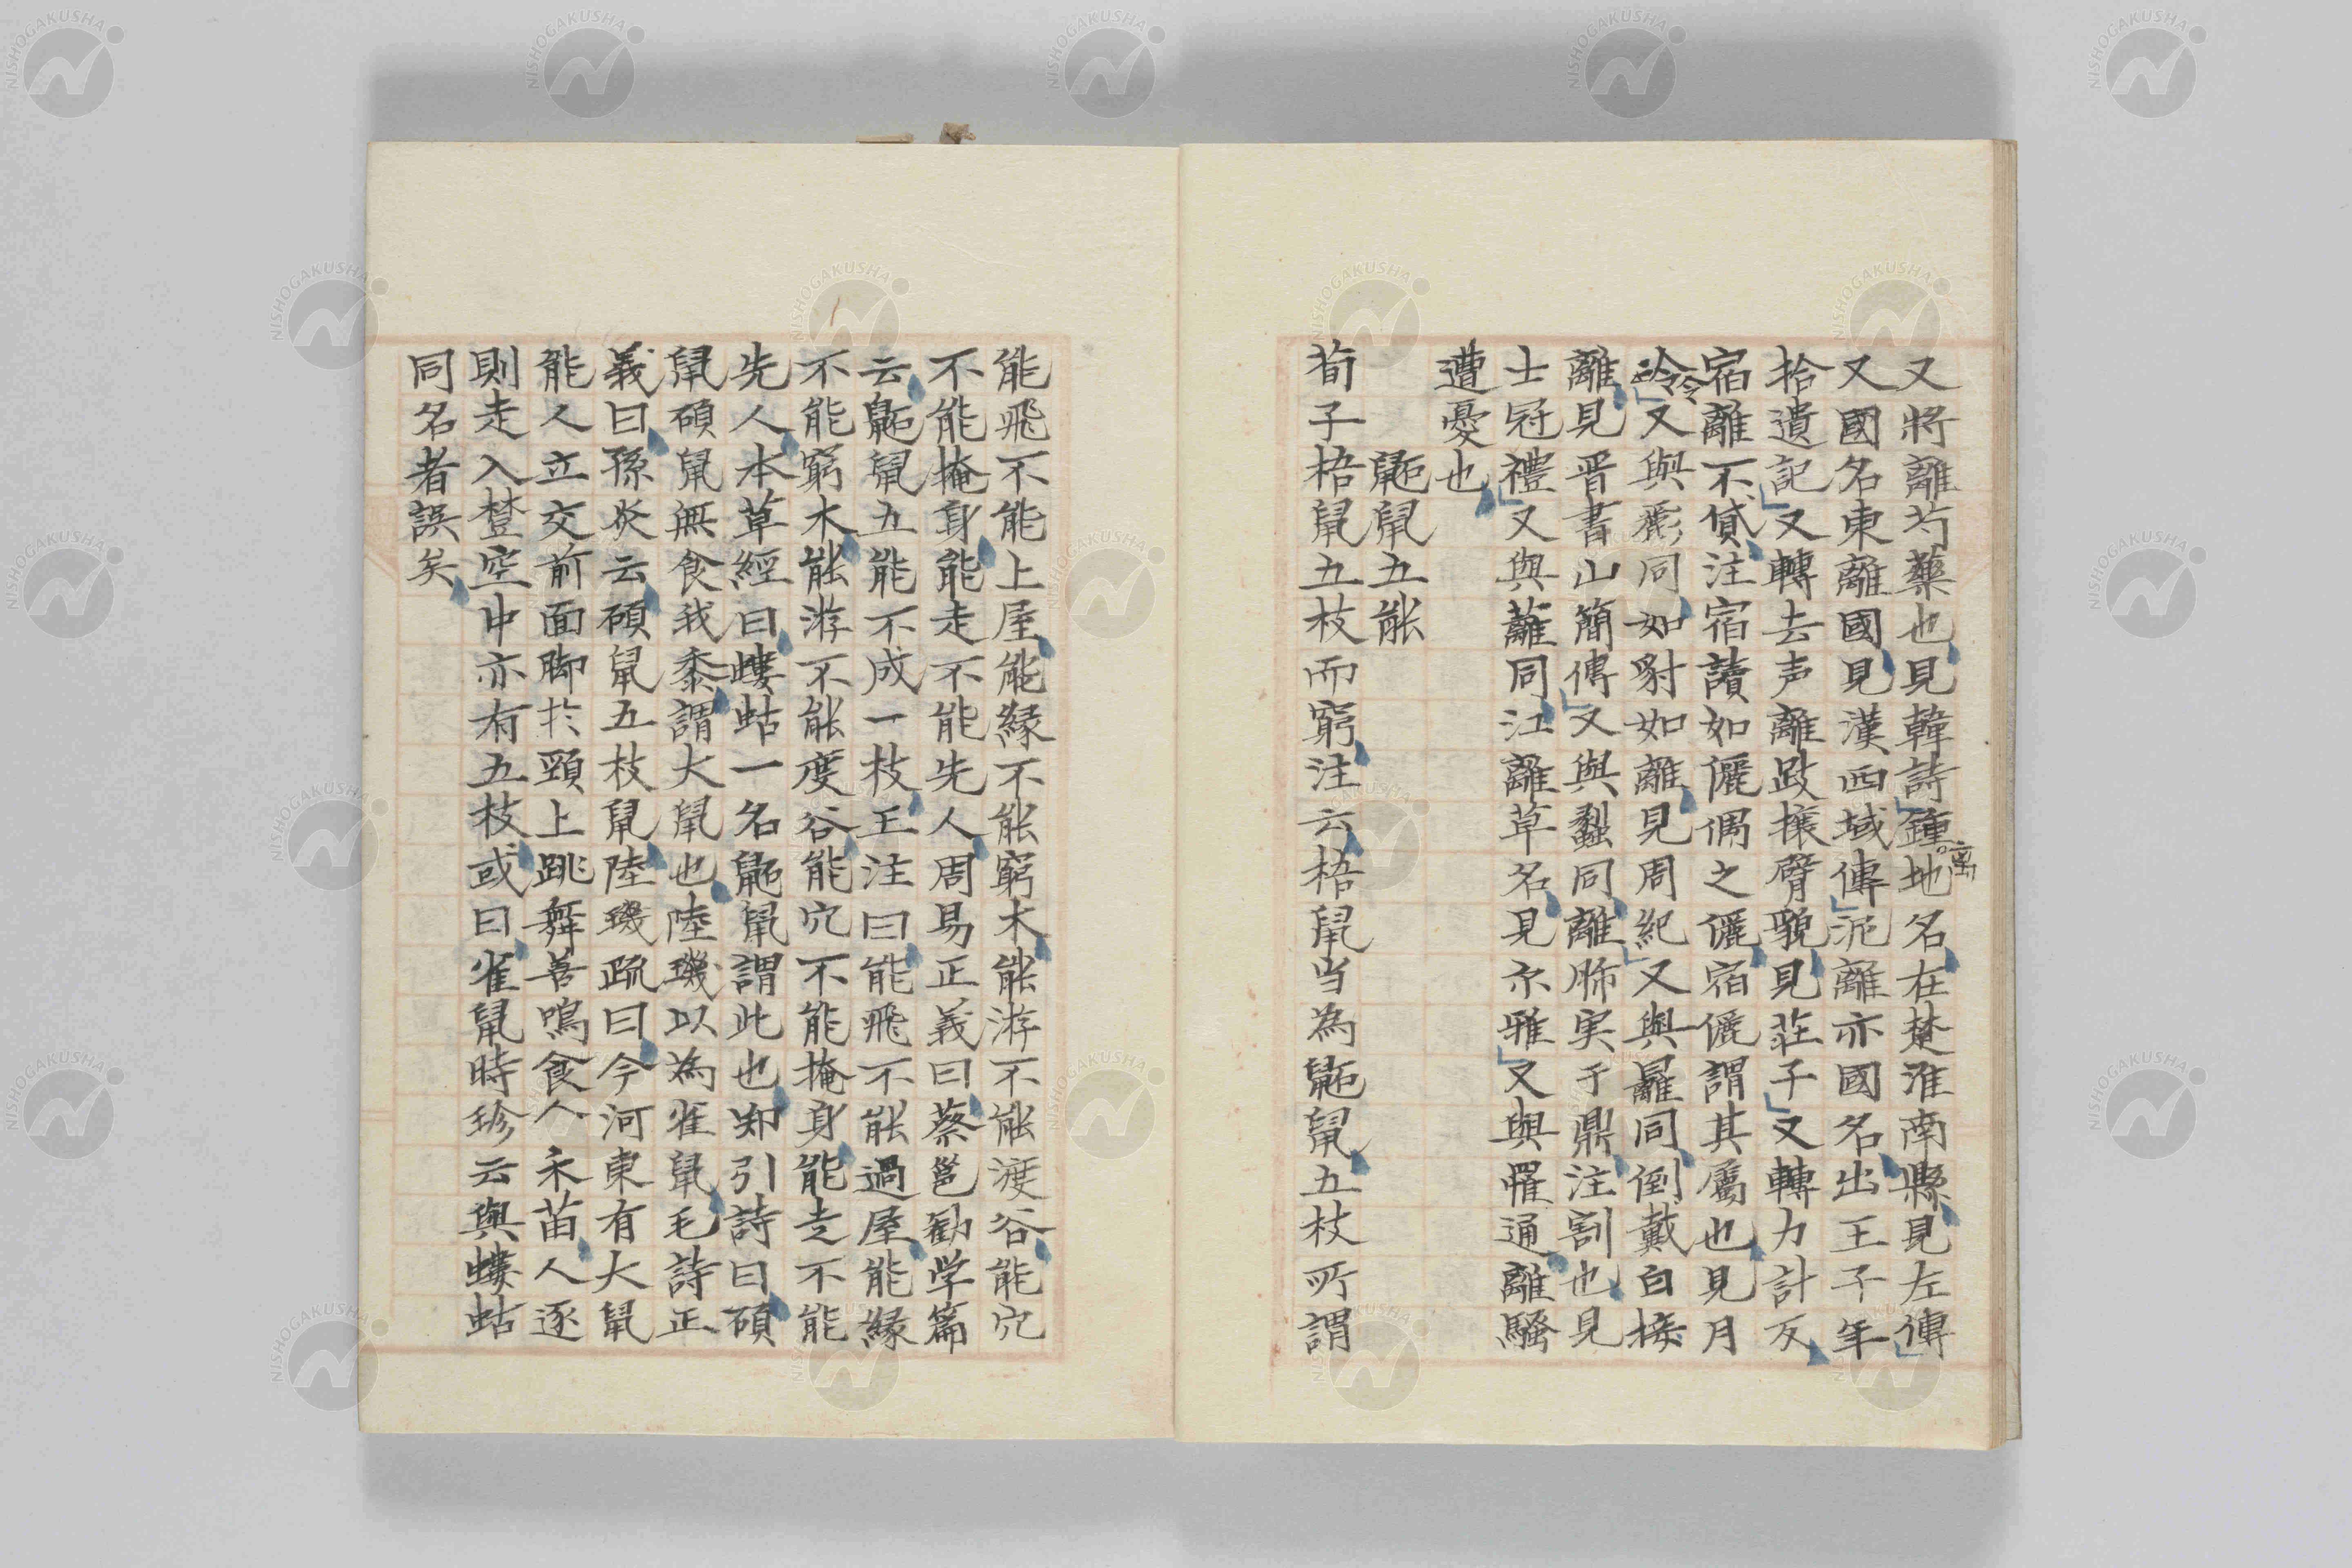 又將離芍藥也見韓詩鍾離地名在楚淮南縣見左傳
又國名東離國見漢西域傳泥離亦國名出王子年
拾遺記又轉去声離跂攘臂貌見莊子又轉力計反
宿離不貸注宿讀如儷偶之儷宿儷謂其屬也見月
令又與彲同如豺如離見周紀又與羅同倒戴白接
離見晋書山簡傳又與蠡同離肺実于鼎注割也見
士冠禮又與蘺同江離草名見尓雅又與罹通離騷
遭憂也
鼫鼠五能
荀子梧鼠五枝而窮注云梧鼠当為鼫鼠五枝所謂
能飛不能上屋能緣不能窮木能游不能渡谷能穴
不能掩身能走不能先人周易正義曰蔡邕勧学篇
云鼫鼠五能不成一枝王注曰能飛不能過屋能緣
不能窮木能游不能度谷能穴不能掩身能走不能
先人本草經曰螻蛄一名鼫鼠謂此也郑引詩曰碩
鼠碩鼠無食我黍謂大鼠也陸璣以為雀鼠毛詩正
義曰孫炎云碩鼠五枝鼠陸璣疏曰今河東有大鼠
能人立交前面脚於頸上跳舞善鳴食人禾苗人逐
則走入樷空中亦有五枝或曰雀鼠時珍云與螻蛄
同名者誤矣
NISHOGAKUSHA